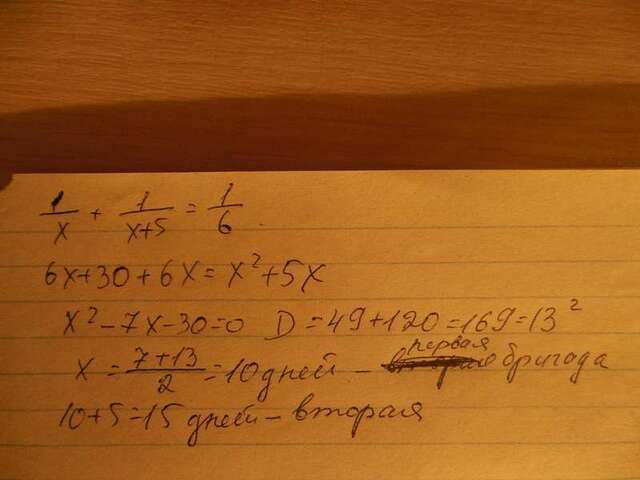 1/x + 1/(x+5) = 1/6
6x+30+6x=x²+5x
x²-7x-30=0 D=49+120=169=13²
x = (7+13)/2 = 10 дней – первая бригада
10+5=15 дней – вторая